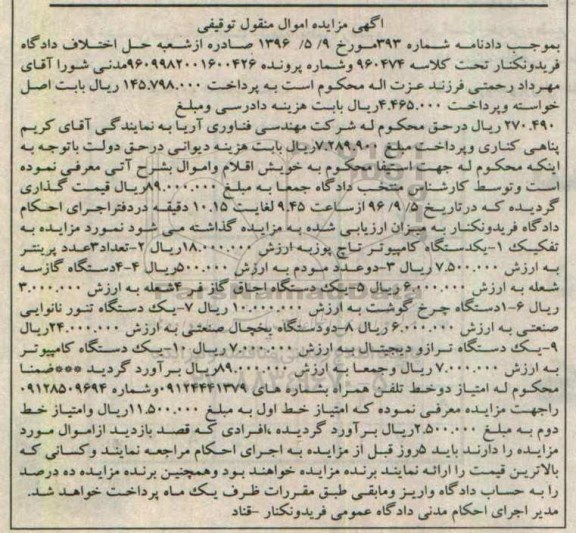 آگهی مزایده اموال منقول توقیفی
بموجب دادنامه شماره ۳۹۳مورخ ۹/ ۵/ ۱۳۹۶ صادره ازشعبه حل اختلاف دادگاه
فریدونکنار تحت کلاسه ۹۶۰۴۷۴ وشماره پرونده ۹۶۰۹۹۸۲۰۰۱۶۰۰۴۲۶مدنی شورا آقای
مهرداد رحمتی فرزند عزت اله محکوم است به پرداخت ۱۴۵.۷۹۸.۰۰۰ ریال بابت اصل
خواسته وپرداخت ۴.۴۶۵.۰۰۰ریال بابت هزینه دادرسی ومبلغ
۲۷۰.۴۹۰ ریال درحق محکوم له شرکت مهندسی فناوری آریا به نمایندگی آقای کریم
پناهی کناری وپرداخت مبلغ ۷.۲۸۹.۹۰۰ریال بابت هزینه دیوانی درحق دولت باتوجه به
اینکه محکوم له جهت استیفارمحکوم به خویش اقلام واموال بشرح آتی معرفی نموده
است وتوسط کارشناس منتخب دادگاه جمعا به مبلغ ۸۹.۰۰۰.۰۰۰ریال قیمت گذاری
گردیده که درتاریخ ۹۶/۹/۵ ازساعت ۹.۴۵ لغایت ۱۰.۱۵ دقیقه دردفتراجرای احکام
دادگاه فریدونکنار به میزان ارزیابی شده به مزایده گذاشته می شود نمورد مزایده به
تفکیک ۱-یکدستگاه کامپیوتر تاچ پوزبه ارزش ۱۸.۰۰۰.۰۰۰ریال ۲-تعداد۳عدد پرینتر
به ارزش ۷.۵۰۰.۰۰۰ ریال ۳-دوعدد مودم به ارزش ۵۰۰.۰۰۰ریال ۴-۴دستگاه گازسه
شعله به ارزش ۶.۰۰۰.۰۰۰ ریال ۵-یک دستگاه اجاق گاز فر ۴شعله به ارزش ۳.۰۰۰.۰۰۰
ریال ۶-۱دستگاه چرخ گوشت به ارزش ۱۰.۰۰۰.۰۰۰ ریال ۷-یک دستگاه تنور نانوایی
صنعتی به ارزش ۶.۰۰۰.۰۰۰ ریال ۸-دودستگاه یخچال صنعتی به ارزش ۲۴.۰۰۰.۰۰۰ریال
۹-یک دستگاه ترازو دیجیتال به ارزش ۷.۰۰۰.۰۰۰ ریال ۱۰-یک دستگاه کامپیوتر
به ارزش ۷.۰۰۰.۰۰۰ ریال وجمعا به ارزش ۸۹.۰۰۰.۰۰۰ریال برآورد گردید ***ضمنا
محکوم له امتیاز دوخط تلفن همراه بشماره های ۰۹۱۲۴۴۴۱۳۷۹وشماره ۰۹۱۲۸۵۰۹۶۹۴
راجهت مزایده معرفی نموده که امتیاز خط اول به مبلغ ۱۱.۵۰۰.۰۰۰ریال وامتیاز خط
دوم به مبلغ ۲.۵۰۰.۰۰۰ریال برآورد گردیده ،افرادی که قصد بازدید ازاموال مورد
مزایده را دارند باید ۵روز قبل از مزایده به اجرای احکام مراجعه نمایند وکسانی که
بالاترین قیمت را ارائه نمایند برنده مزایده خواهند بود وهمچنین برنده مزایده ده درصد
را به حساب دادگاه واریز ومابقی طبق مقررات ظرف یک ماه پرداخت خواهد شد.
مدیر اجرای احکام مدنی دادگاه عمومی فریدونکنار -قناد